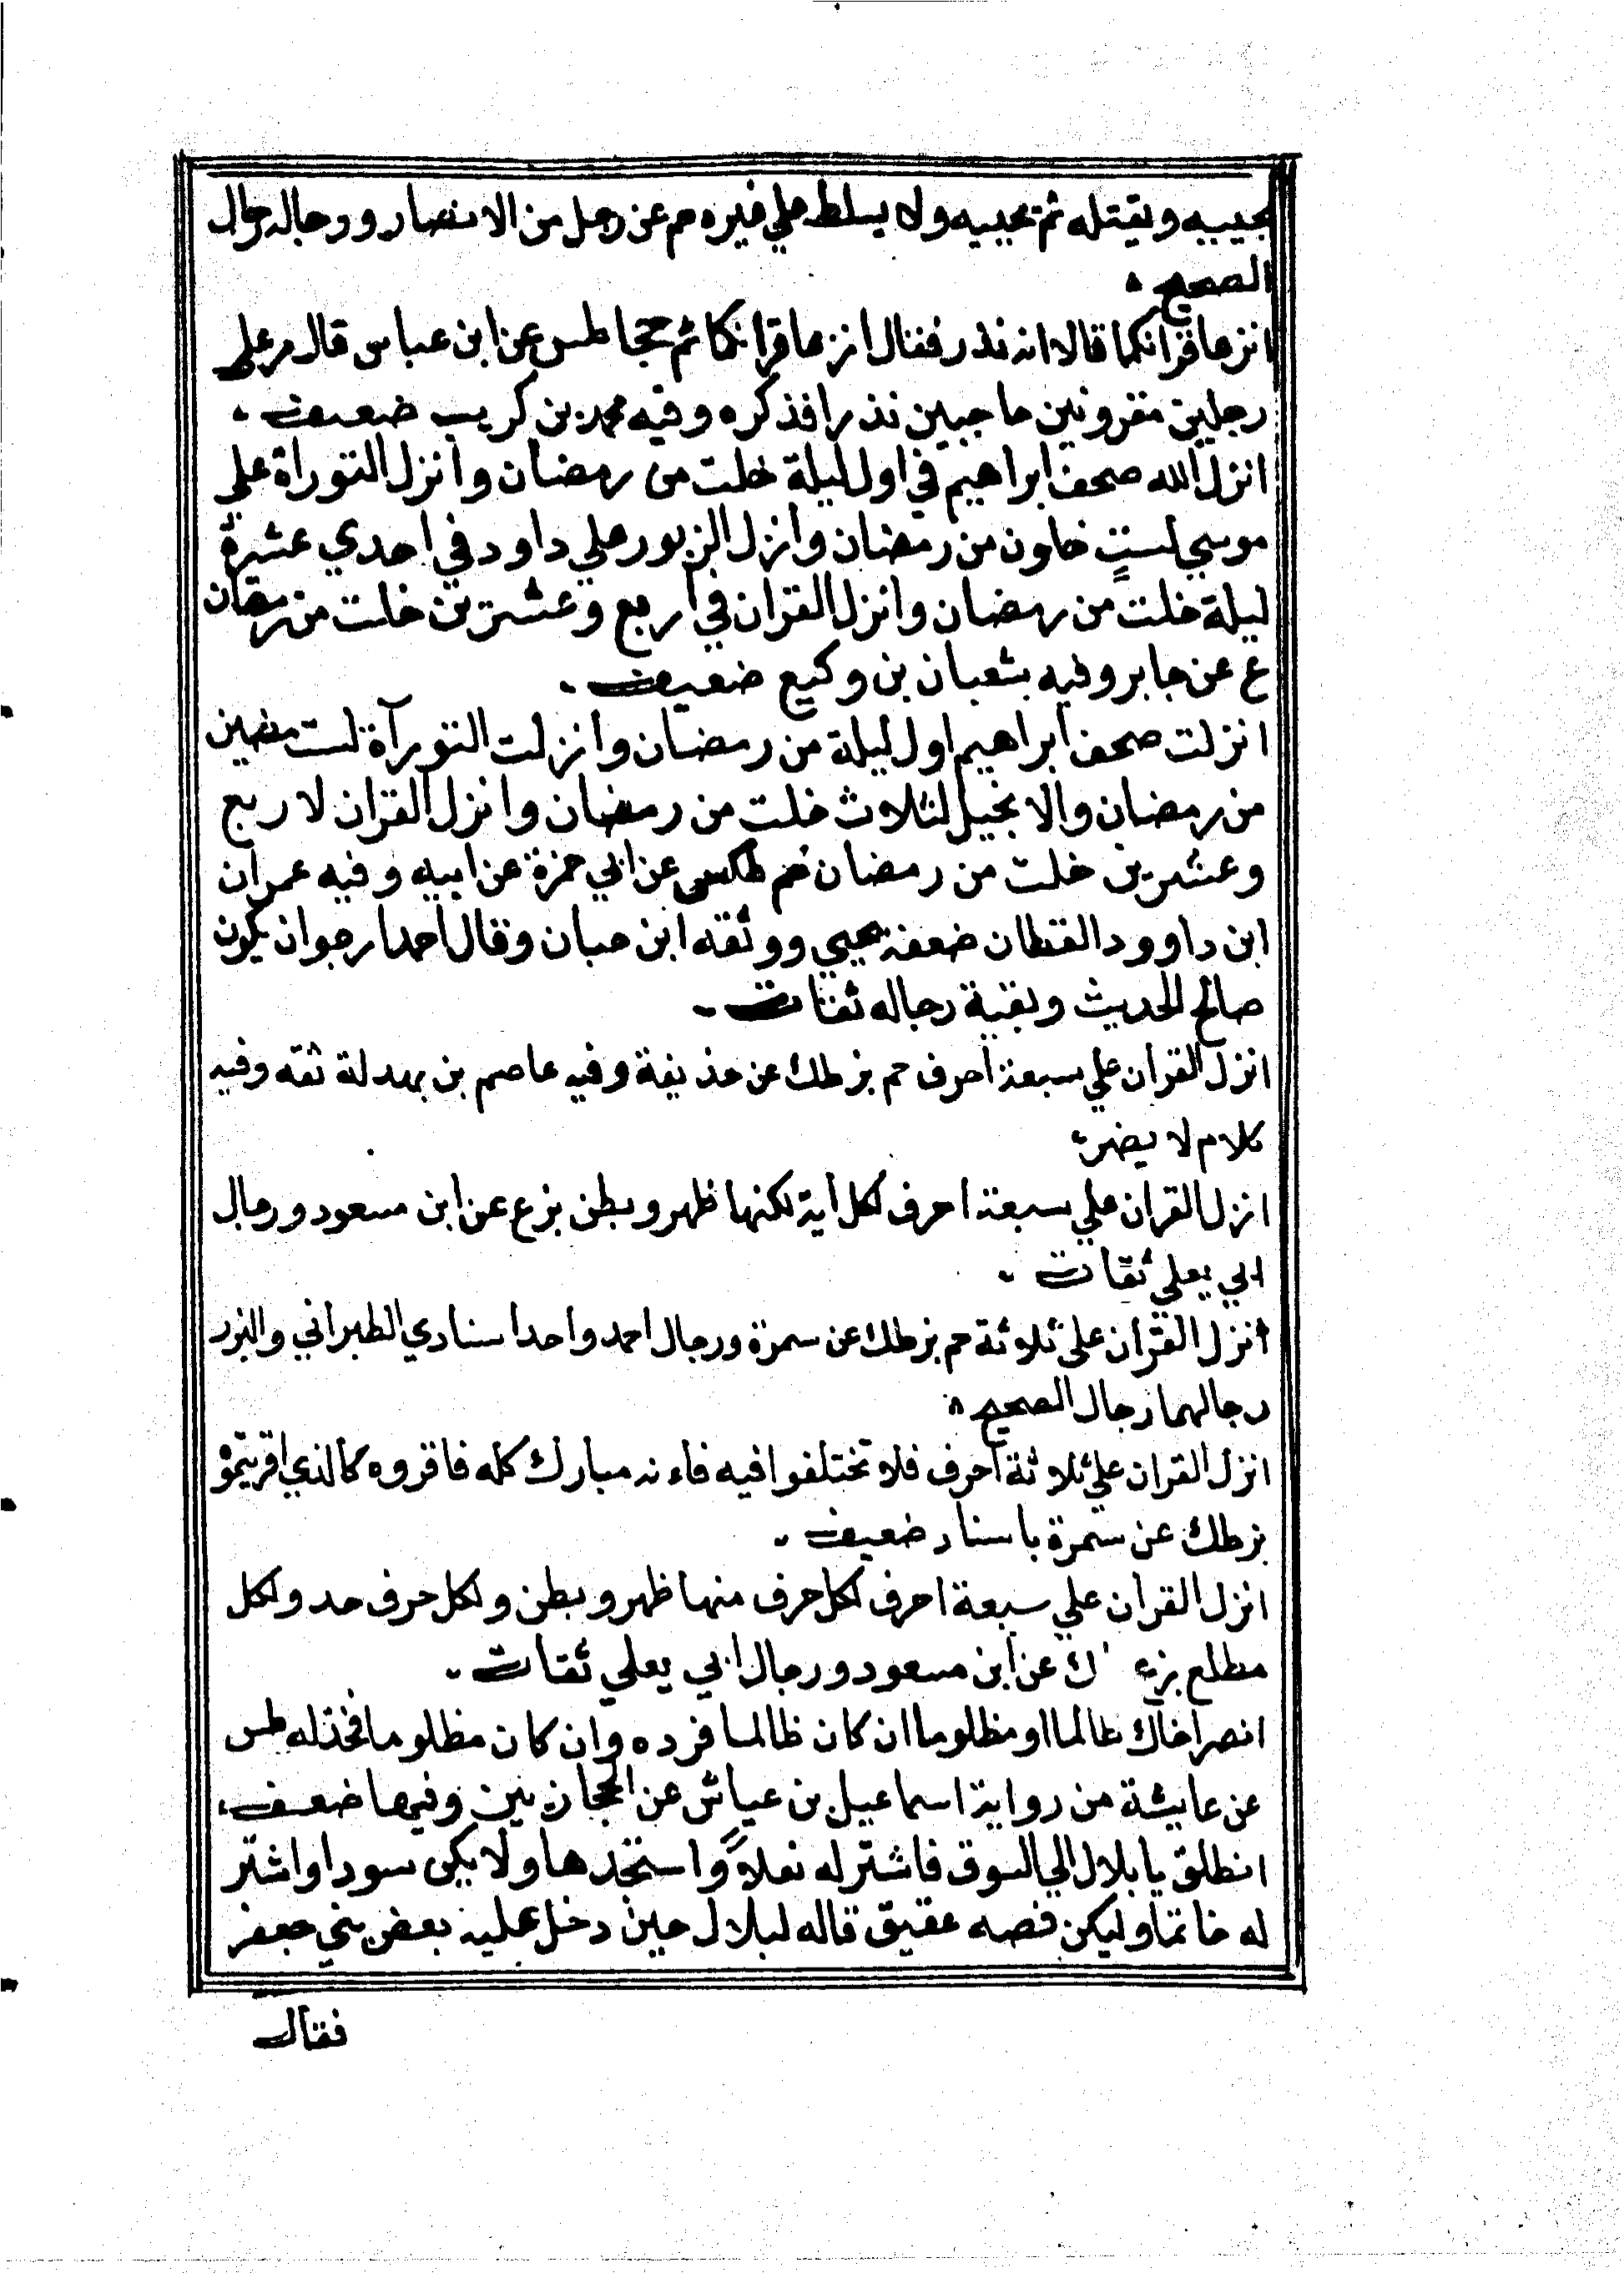 يجيبه ويقتله ثم يحييه ولا يسلط علي غيره حم عن رجل من الانصار ورجاله رجال
الصحيح
انزعا قرانكما قالا انه نذر فقال انزعا قرانكما ثم حجا طس عن ابن عباس قال مر علي
رجلين مقرونين حاجبين نذرا فذكره وفيه محمد بن كريب ضعيف
انزل الله صحف ابراهيم في اول ليلة خلت من رمضان وانزل التوراة علي
موسي لست خلون من رمضان وانزل الزبور علي داود في احدي عشرة
ليلة خلت من رمضان وانزل القران في اربع وعشرين خلت من رمضان
ع عن جابر وفيه شعبان بن وكيع ضعيف
انزلت صحف ابراهيم اول ليلة من رمضان وانزلت التورآة لست مضين
من رمضان والانجيل لثلاث خلت من رمضان وانزل القران لاربع
وعشرين خلت من رمضان حم عن ابي حمزة عن ابيه وفيه عمران
ابن داوود القطان ضعفه يحيي ووثقه ابن حبان وقال احمد ارجوان يكون
صالح الحديث وبقية رجاله ثقات
انزل القران علي سبعة احرف حم بز طك عن حذيفة وفيه عاصم بن بهدلة ثقه وفيه
كلام لا يضر
انزل القران علي سبعة احرف لكل اية لكنها ظهر وبطن بزع عن ابن مسعود ورجال
ابي يعلي ثقات
انزل القران علي ثلاثة حم بز طك عن سمرة ورجال احمد واحد اسنادي الطبراني والبزر
رجالهما رجال الصحيح
انزل القران علي ثلاثة احرف فلا تختلفوا فيه فاءنه مبارك كله فاقروه كالذي اقريتموه
بز طك عن سمرة باسناد ضعيف
انزل القران علي سبعة احرف لكل حرف منها ظهر وبطن ولكل حرف حد ولكل
مطلع بزع ك عن ابن مسعود ورجال ابي يعلي ثقات
انصر اخاك ظالما او مظلوما ان كان ظالما فرده وان كان مظلوما فخذ له طس
عن عايشة من رواية اسماعيل بن عياش عن الحجازيين وفيها ضعف
انطلق يا بلال الي السوق فاشتر له نعلا واستجدها ولا يكن سودا واشتر
له خاتما وليكن فصه عقيق قاله لبلال حين دخل عليه بعض بني جعفر
فقال